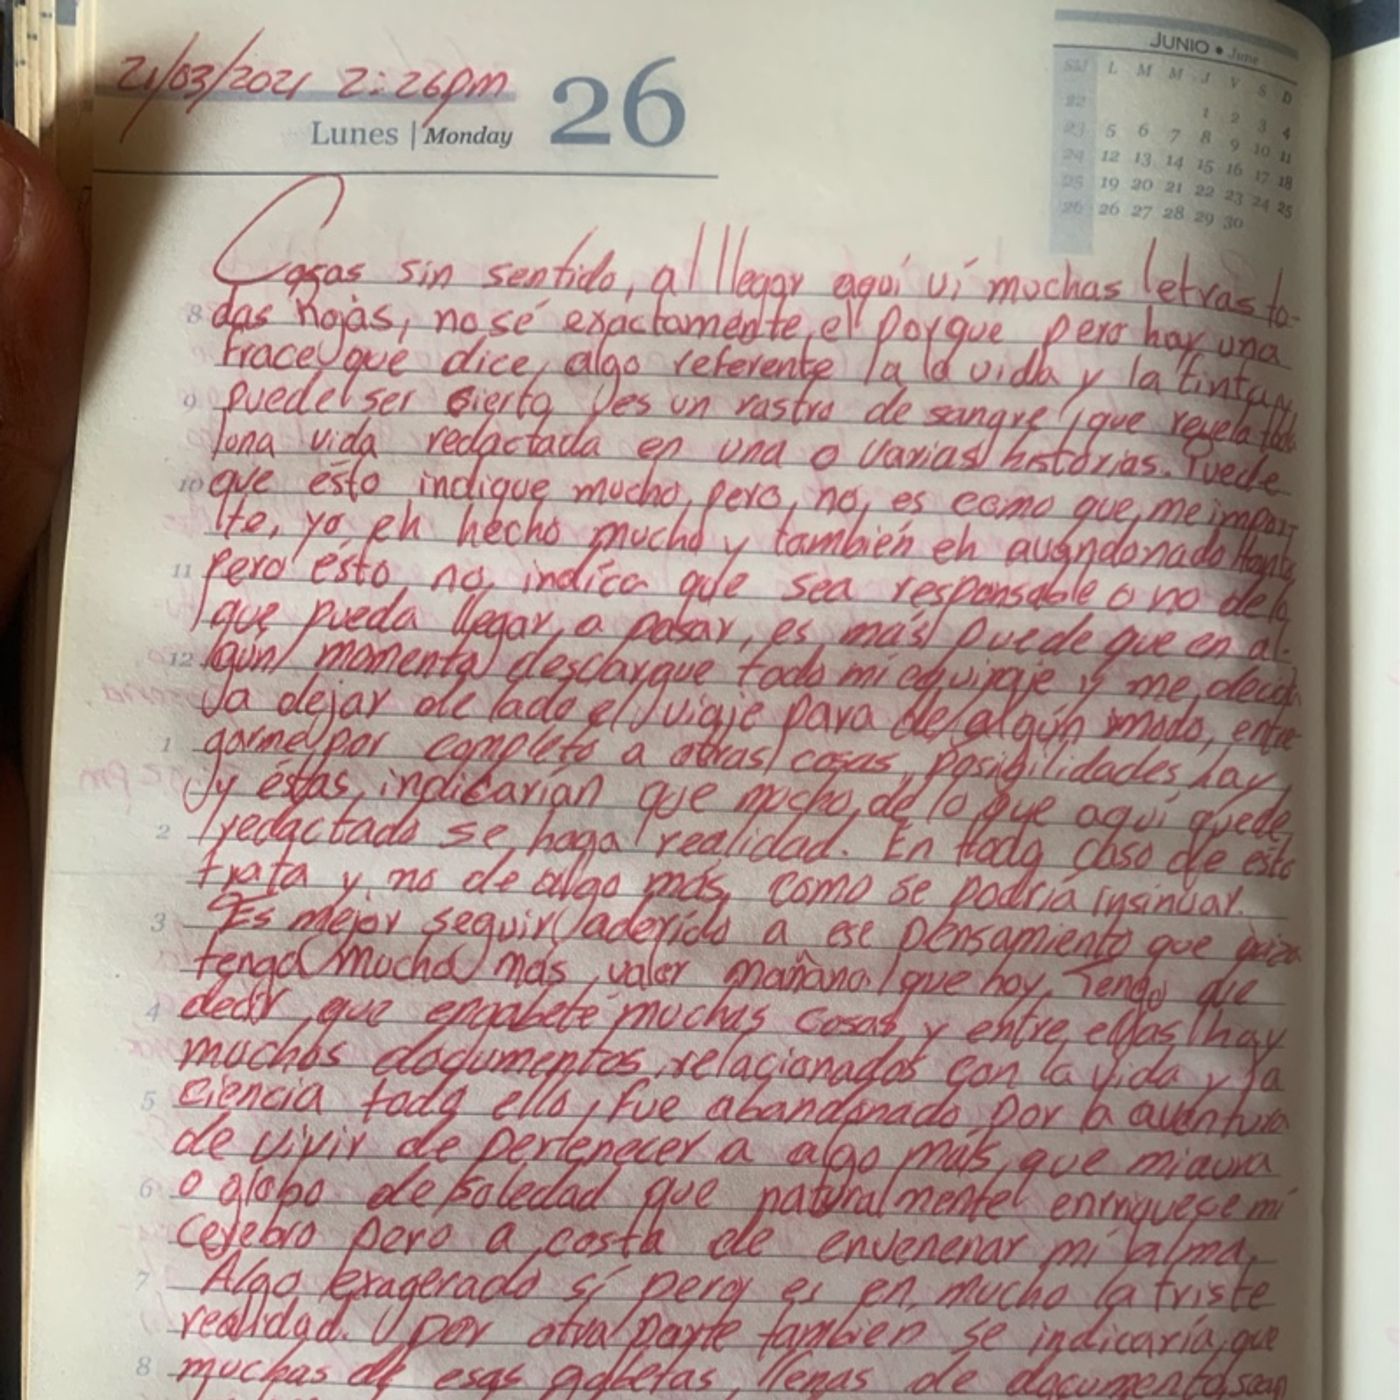 21/03/2021 2:26pm
Lunes | Monday 26
JUNIO • June
SM L M M J V S D
22 1 2 3 4
23 5 6 7 8 9 10 11
24 12 13 14 15 16 17 18
25 19 20 21 22 23 24 25
26 26 27 28 29 30
Cosas sin sentido, al llegar aquí ví muchas letras to-
8 das Rojas, no sé exactamente el porque pero hay una
frace que dice, algo referente a la vida y la tinta,
9 puede ser cierto es un rastro de sangre que revela toda
una vida redactada en una o varias historias. Puede
10 que ésto indique mucho, pero, no, es como que me impor-
te, yo eh hecho mucho y también eh avandonado tanto
11 Pero ésto no indica que sea responsable o no de lo
que pueda llegar a pasar, es más puede que en al-
12 gún momento descargue todo mi equipaje y me decid
a dejar de lado el viaje para de algún modo, entre-
1 garme por completo a otras cosas, Posibilidades hay
y éstas, indicarían que mucho de lo que aquí quede
2 redactado se haga realidad. En todo caso de esto
trata y no de algo más, como se podría insinuar.
3 Es mejor seguir aderido a ese pensamiento que quiza
tenga mucho más valor mañana que hoy, Tengo que
4 decir, que engabeté muchas cosas y entre ellas hay
muchos documentos relacionados con la vida y la
5 ciencia todo ello, fue abandonado por la aventura
de vivir de pertenecer a algo más, que mi aura
6 o globo de soledad que naturalmente enriquece mi
cerebro pero a costa de envenenar mi alma.
7 Algo exagerado sí pero es en mucho la triste
realidad. por otra parte tambien se indicaría, que
8 muchas de esas gabetas, llenas de documentos